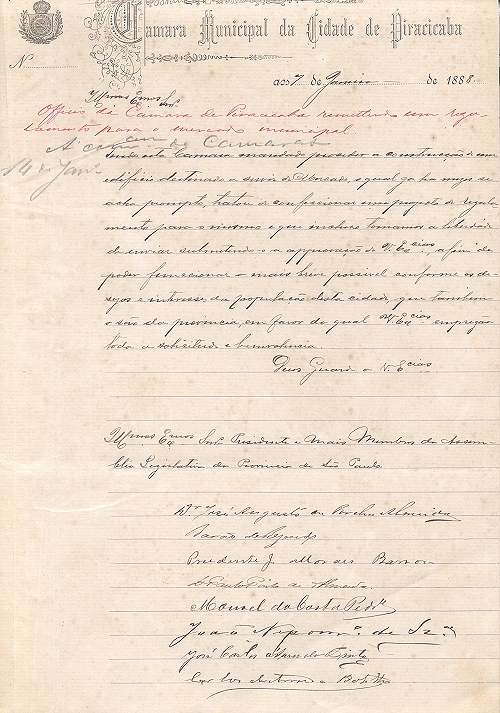 Camara Municipal da Cidade de Piracicaba
Nº
aos 7 de Janeiro de 1888.
Illmos Exmos Snrs
Officio da Camara de Piracicaba remettendo um regu-
lamento para o mercado municipal
A com. de Camaras
14 de Jan.
Tendo esta Camara mandado proceder a construcção de um
edificio destinado a servir de Mercado, o qual ja ha mezes se
acha prompto, tratou de confeccionar um projecto de regula
mento para o mesmo e que incluso tomamos a liberdade
de enviar submettendo-o a approvação de V. Excias, afim de
poder funccionar o mais breve possivel conforme os de-
sejos e interesses da população desta cidade, que tambem
o são da provincia, em favor do qual V. Excias empregão
toda a solicitude e benevolencia.
Deus Guarde a V. Excias
Illmos Exmos Snrs Presidente e Mais Membros da Assem-
bléa Legislativa da Provincia de São Paulo
Dr José Augusto da Rocha Almeida
Barão de Rezende
Prudente J. Moraes Barros
Dr Paulo Pinto de Almeida
Manoel da Costa Pedr
João Nepom.º de
José Carlos
Carlos